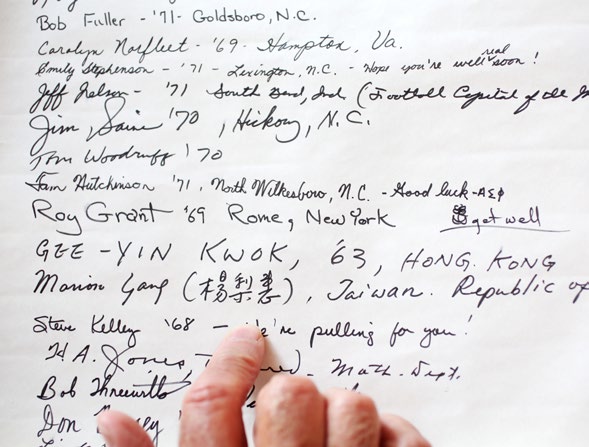 Bob Fuller - '71 - Goldsboro, N.C.
Carolyn Norfleet - '69 - Hampton, Va.
Emily Stephenson - '71 - Lexington, N.C. - Hope you're well real soon!
Jeff Nelson - '71 South Bend, Ind. (Football Capital of the
Jim Saine '70, Hickory, N.C.
Tom Woodruff '70
Sam Hutchinson '71, North Wilkesboro, N.C. - Good luck - ΑΣΦ
Roy Grant '69 Rome, New York get well
GEE-YIN KWOK, '63, HONG KONG
Marion Yang (楊), Taiwan. Republic of
Steve Kelley '68 - We're pulling for you!
H.A. Jones, Math. Dept.
Bob
Don